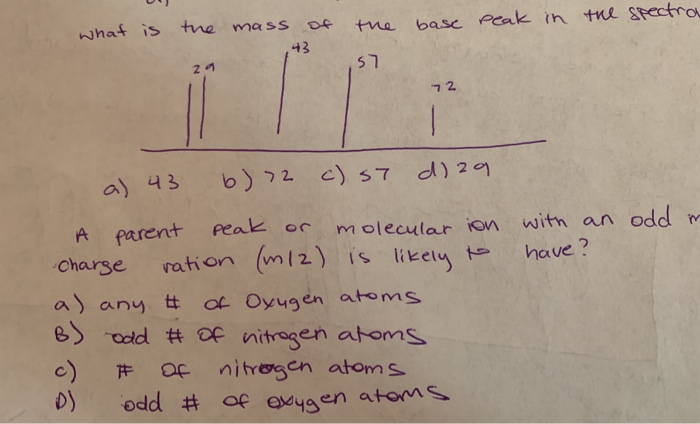 what is the mass of the base peak in the spectra
29 43 57 72
a) 43 b) 72 c) 57 d) 29
A parent peak or molecular ion with an odd m
charge ration (m/z) is likely to have?
a) any # of Oxygen atoms
B) odd # of nitrogen atoms
c) # of nitrogen atoms
D) odd # of oxygen atoms